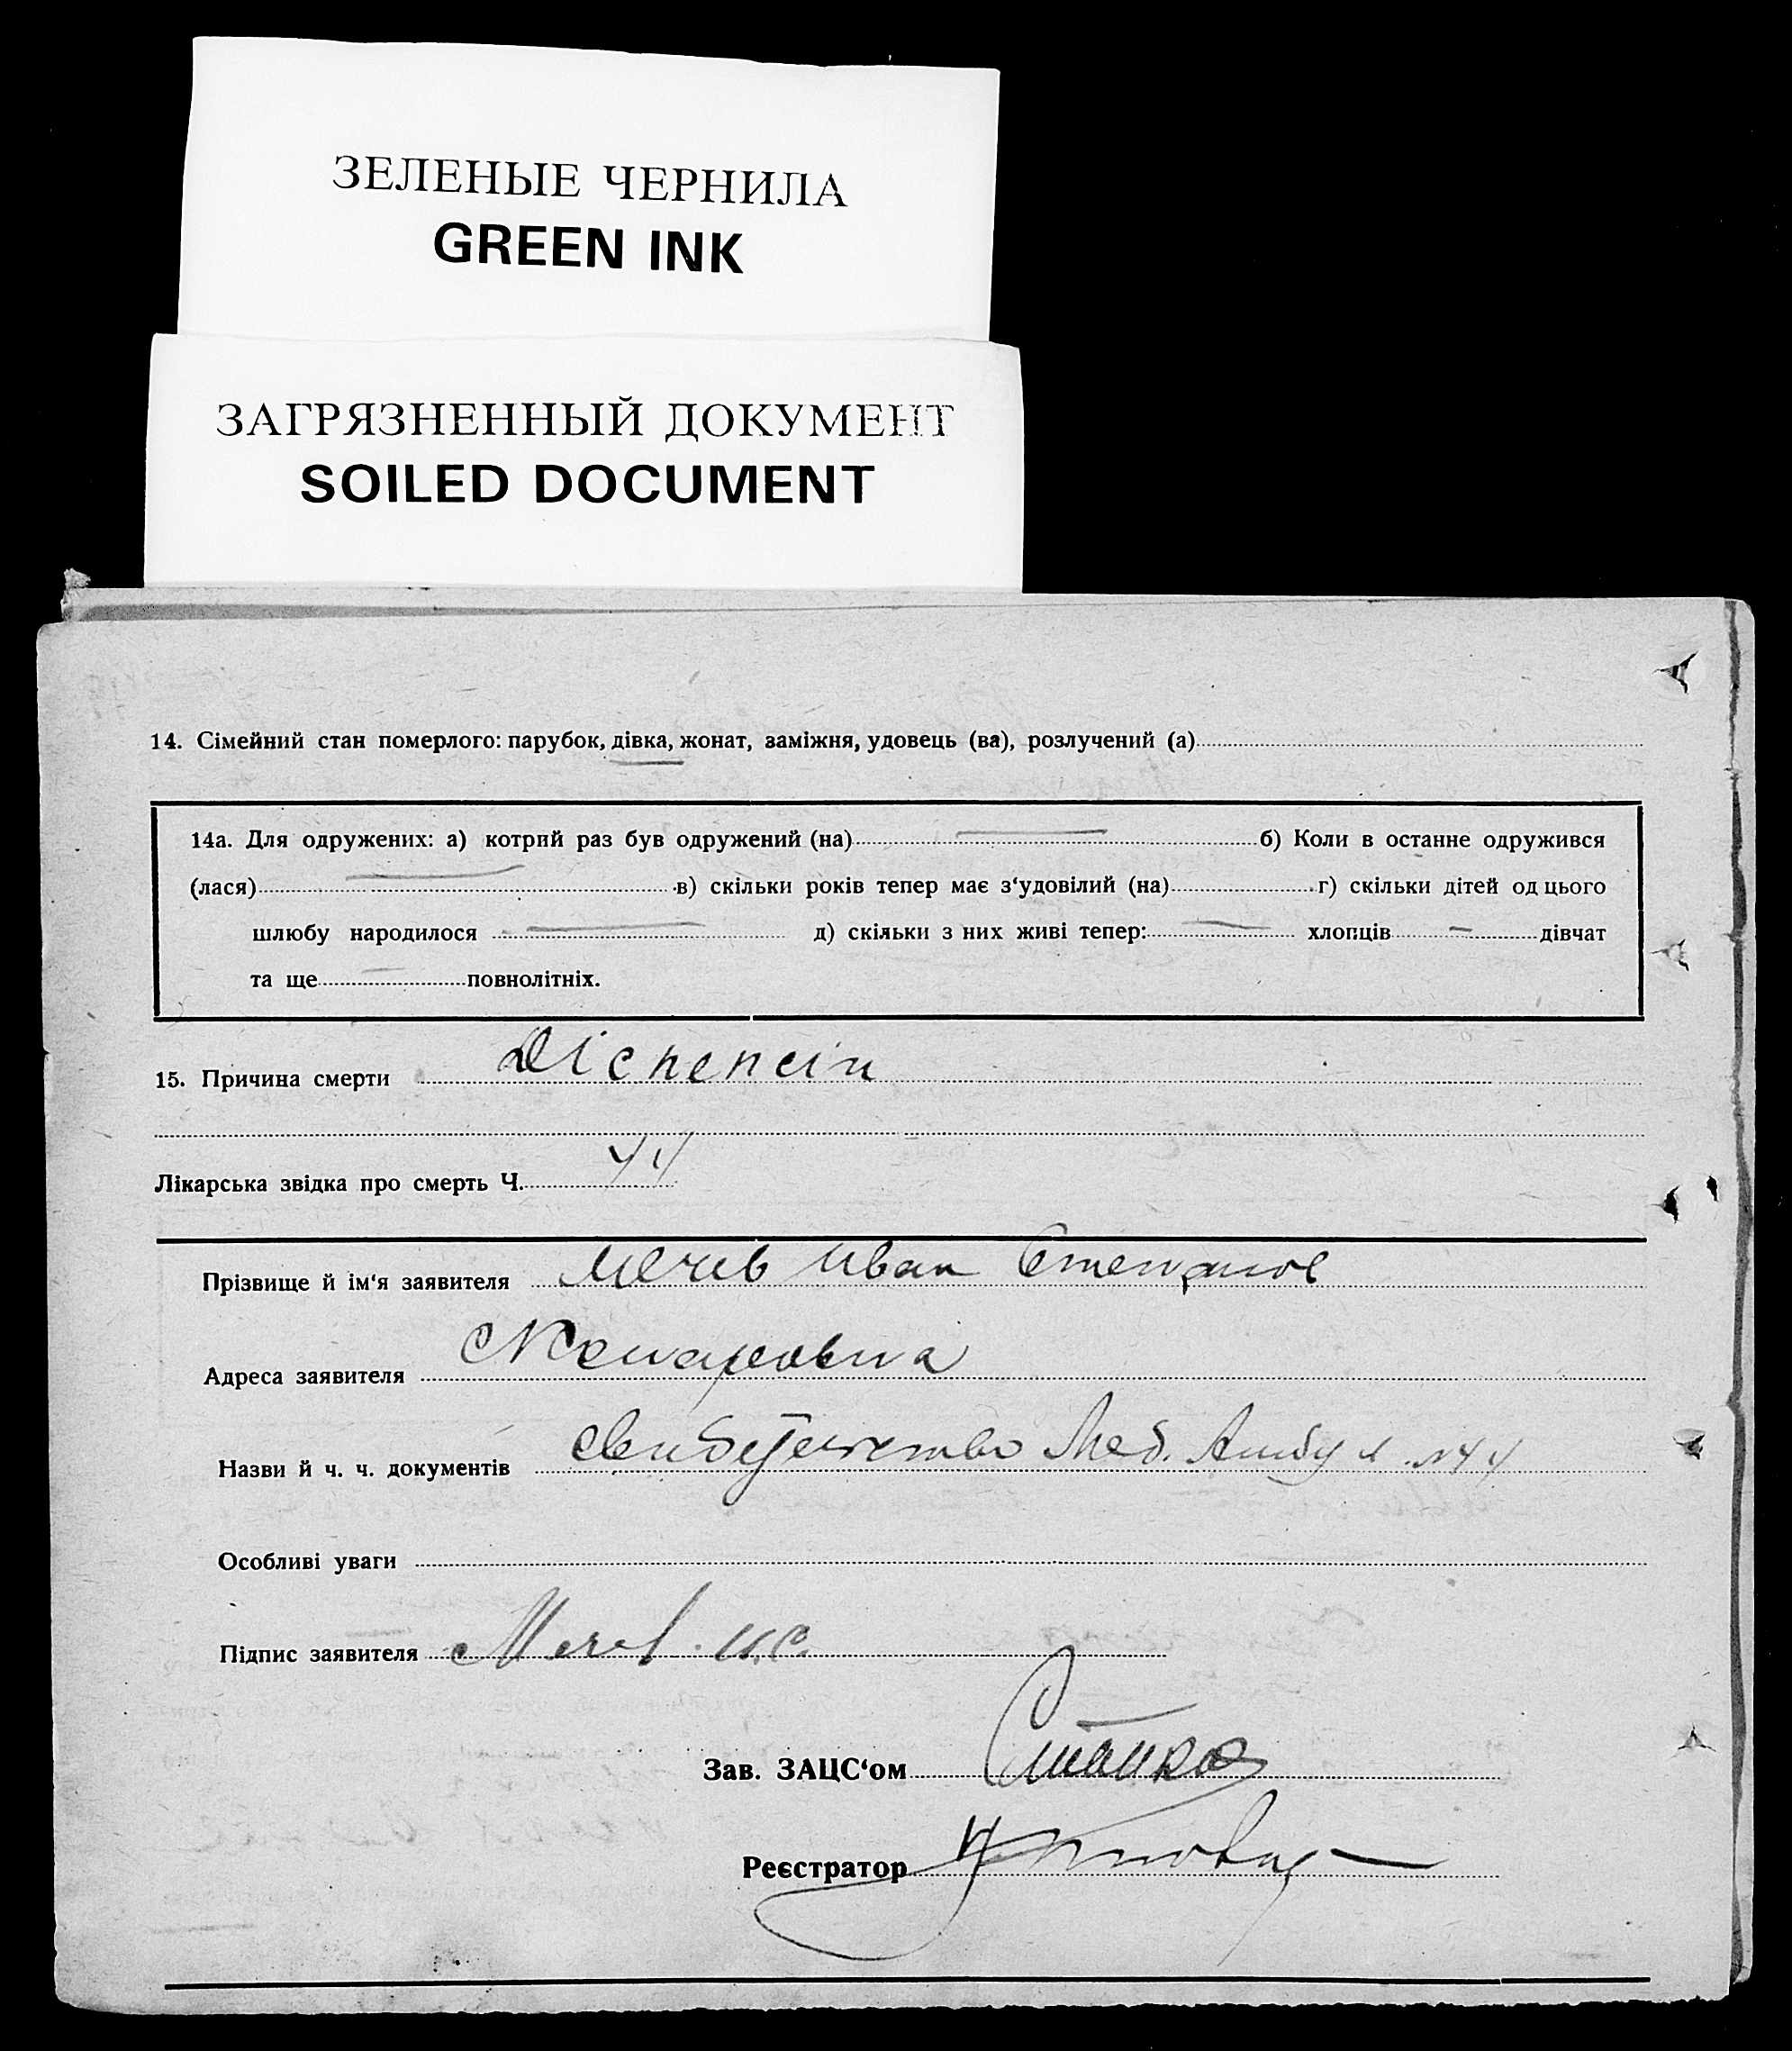 ЗЕЛЕНЫЕ ЧЕРНИЛА
GREEN INK
ЗАГРЯЗНЕННЫЙ ДОКУМЕНТ
SOILED DOCUMENT
14. Сімейний стан померлого: парубок, дівка, жонат, заміжня, удовець (ва), розлучений (а)
14а. Для одружених: а) котрий раз був одружений (на) — б) Коли в останне одружився
(лася) — в) скільки років тепер має з‘удовілий (на) г) скільки дітей од цього
шлюбу народилося — д) скільки з них живі тепер: — хлопців — дівчат
та ще — повнолітніх.
15. Причина смерти Діспепсія
Лікарська звідка про смерть Ч. 44
Прізвище й ім‘я заявителя Мечев Иван Степанов
Адреса заявителя
Назви й ч. ч. документів Свидетельство Мед. Амбул №44
Особливі уваги
Підпис заявителя Мечев. И.С.
Зав. ЗАЦС‘ом
Реєстратор